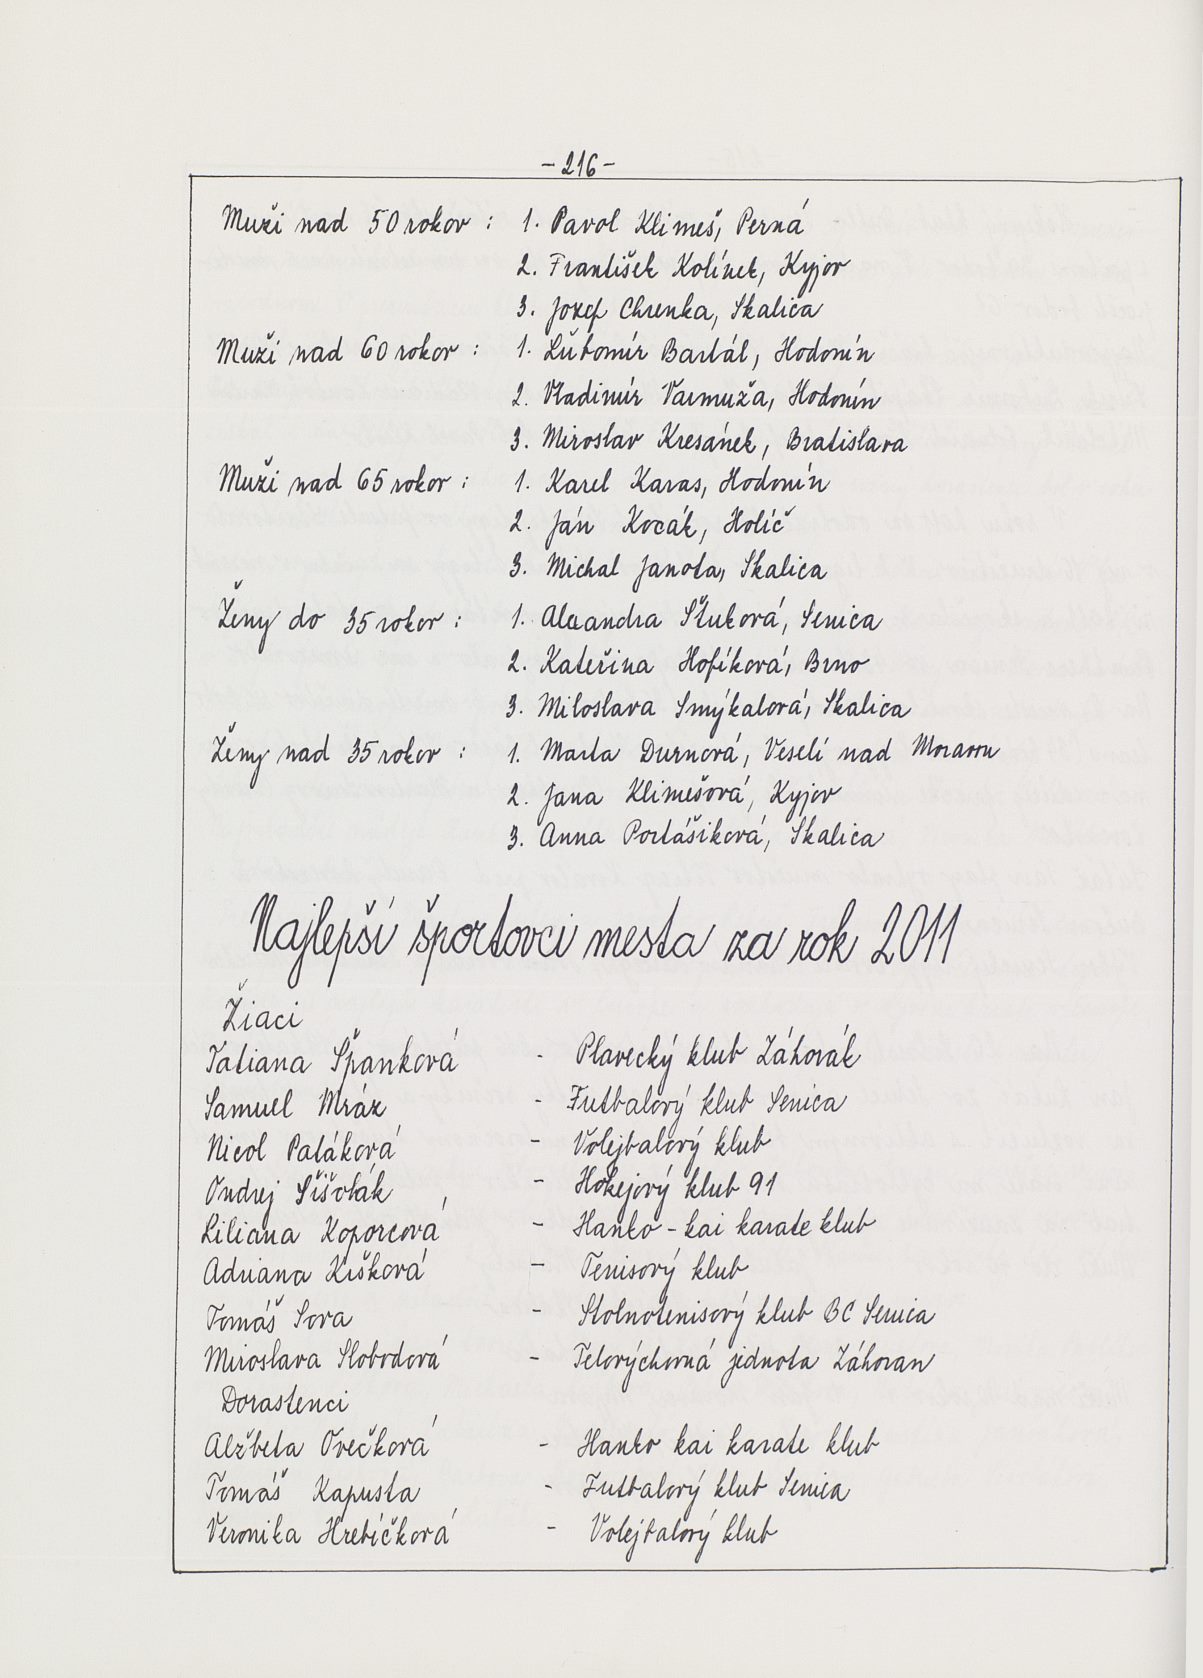 - 216 -
Muži nad 50 rokov : 1. Pavol Klimeš, Perná
2. František Kolínek, Kyjov
3. Jozef Chrenka, Skalica
Muži nad 60 rokov : 1. Ľubomír Bartál, Hodonín
2. Vladimír Varmuža, Hodonín
3. Miroslav Kresánek, Bratislava
Muži nad 65 rokov : 1. Karel Karas, Hodonín
2. Ján Kocák, Holíč
3. Michal Janota, Skalica
Ženy do 35 rokov : 1. Štuková, Senica
2. Kateřina Hofíková, Brno
3. Miloslava Smýkalová, Skalica
Ženy nad 35 rokov : 1. Marta Durnová, Veselí nad Moravou
2. Jana Klimešová, Kyjov
3. Anna Portášiková, Skalica
Najlepší športovci mesta za rok 2011
Žiaci
Tatiana Špánková - Plavecký klub Záhorák
Samuel Mráz - Futbalový klub Senica
Nicol Paláková - Volejbalový klub
Ondrej Šišolák - Hokejový klub 91
Liliana Koporcová - Hanko - kai karate klub
Adriana Kršková - Tenisový klub
Tomáš Sova - Stolnotenisový klub BC Senica
Miroslava Slobodová - Telovýchovná jednota Záhoran
Dorastenci
Alžbeta Ovečková - Hanko kai karate klub
Tomáš Kapusta - Futbalový klub Senica
Veronika Hrebíčková - Volejbalový klub